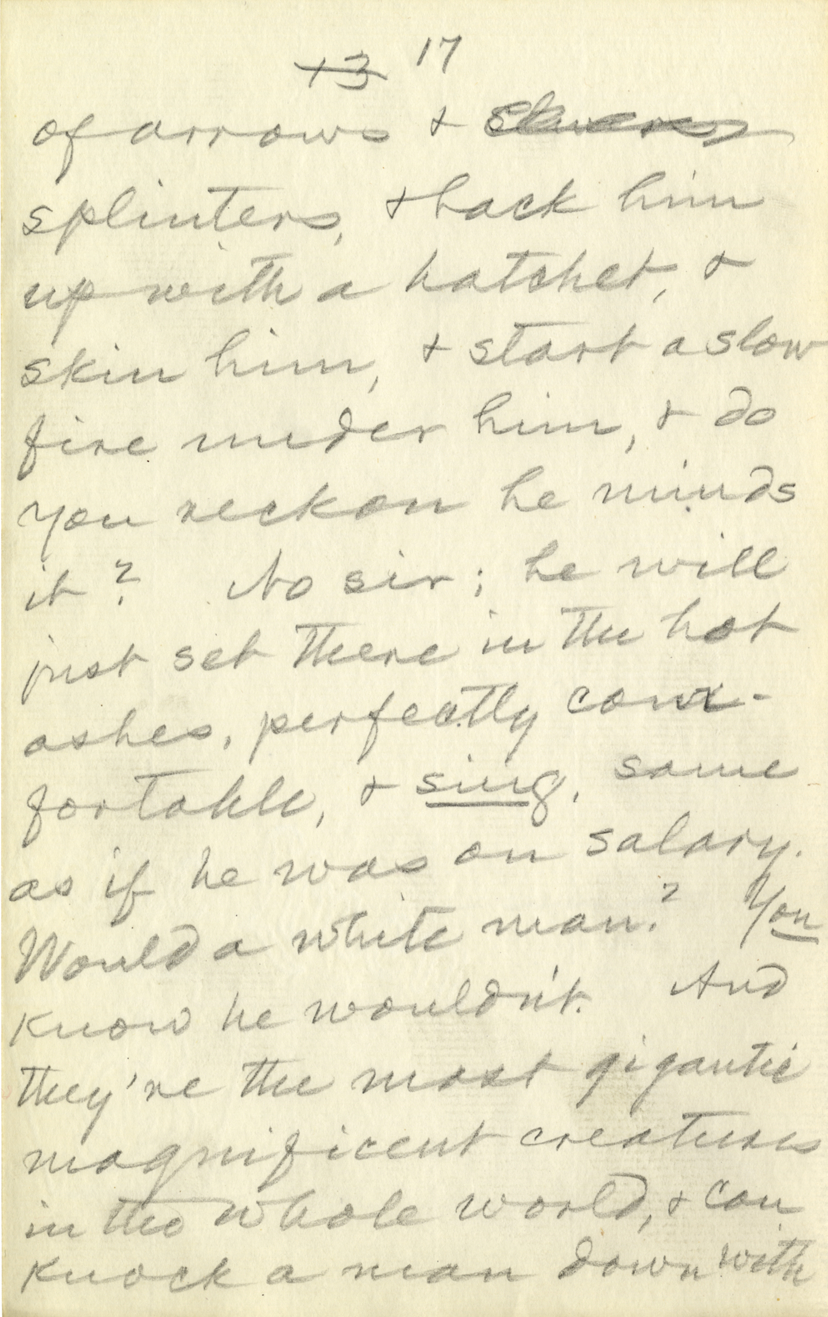 13 17
of arrows &
splinters, & hack him
up with a hatchet, &
skin him, & start a slow
fire under him, & do
you reckon he minds
it? No sir; he will
just set there in the hot
ashes, perfectly com-
fortable, & sing, same
as if he was on salary.
Would a white man? You
know he wouldn't. And
they're the most gigantic
magnificent creatures
in the whole world, & can
knock a man down with